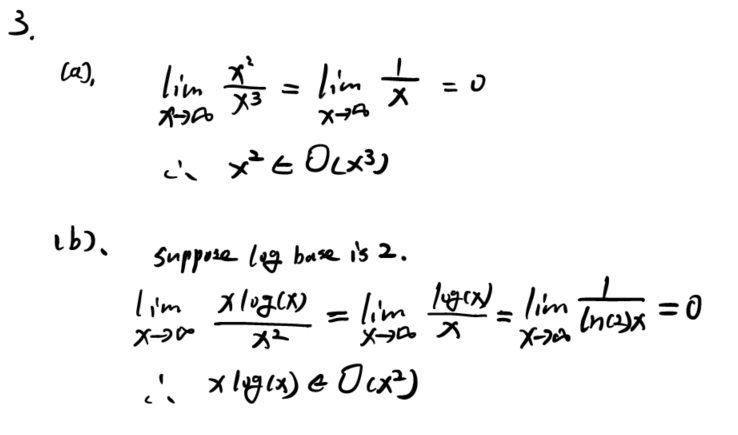 3.
(a). lim x→∞ x²/x³ = lim x→∞ 1/x = 0
∴ x² ∈ O(x³)
(b). suppose log base is 2.
lim x→∞ xlog(x)/x² = lim x→∞ log(x)/x = lim x→∞ 1/ln(2)x = 0
∴ xlog(x) ∈ O(x²)